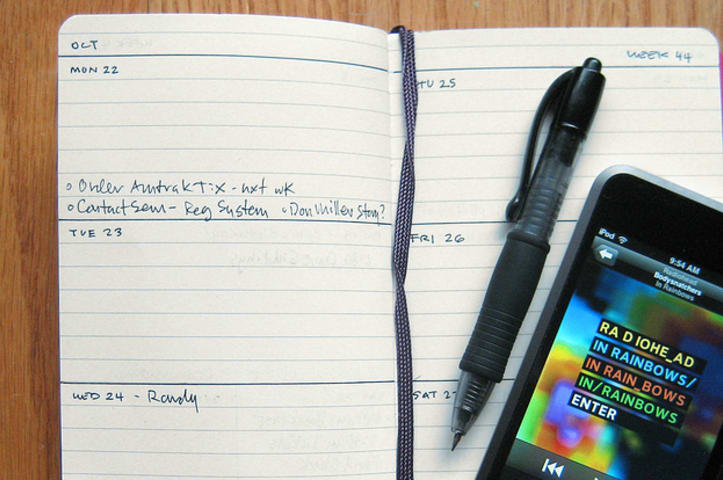 OCT
MON 22
o Order Amtrak Tix - nxt wk
o Contact Sem - Reg System o Don Miller Story?
TUE 23
WED 24 - Randy
WEEK 44
TU 25
FRI 26
SAT 27
iPod
9:54 AM
Radiohead
Bodysnatchers
In Rainbows
RA D IOHE_AD
IN RAINBOWS/
IN RAIN_BOWS
IN/RAINBOWS
ENTER